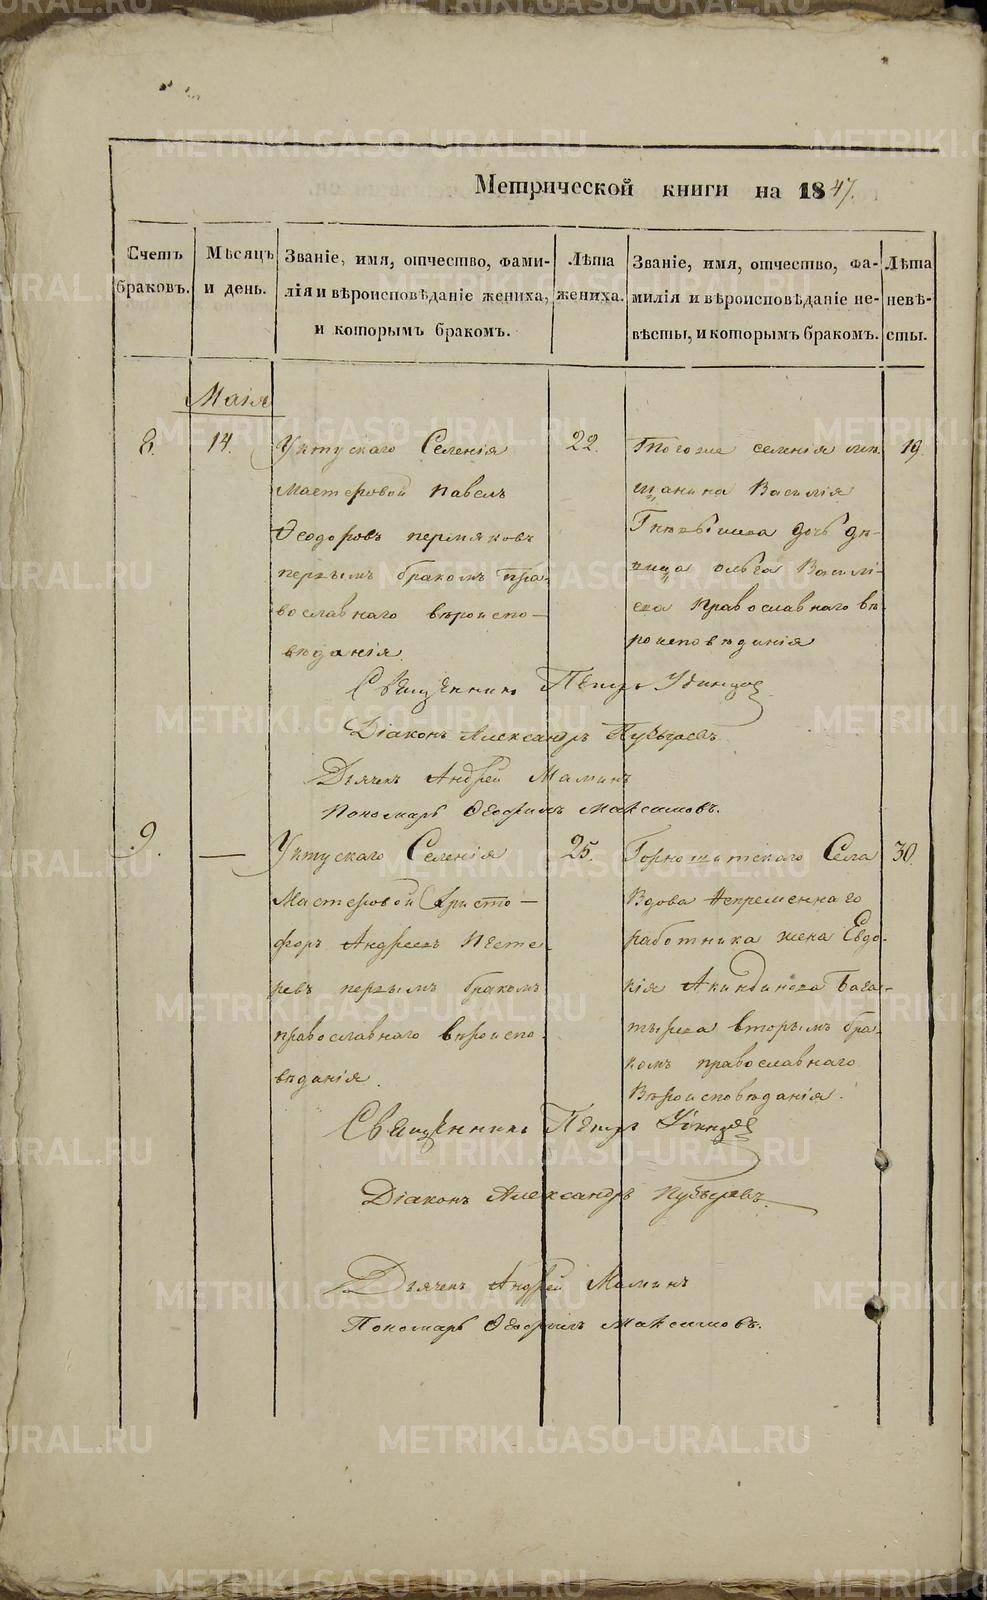 Метрической книги на 1847.
Счетъ браковъ.
Мѣсяцъ и день.
Званіе, имя, отчество, фами-
лія и вѣроисповѣданіе жениха,
и которымъ бракомъ.
Лѣта
жениха.
Званіе, имя, отчество, фа-
милія и вѣроисповѣданіе не-
вѣсты, и которымъ бракомъ.
Лѣта
невѣ-
сты.
Маія
8.
14.
Уктускаго Селенія
мастеровой Павелъ
Ѳеодоровъ пермяковъ
первымъ бракомъ пра-
вославнаго вѣроиспо-
вѣданія
22.
Тогоже селенія мѣ-
щанина Василія
дочь дѣ-
вица ольга Василі-
ева православнаго вѣ-
роисповѣданія
19.
Священникъ Петръ Удинцов
Діаконъ Александръ
Дьячекъ Андрей Маминъ
Пономарь Ѳеофилъ Максимовъ.
9.
—
Уктускаго Селенія
Мастеровой Христо-
форъ Андреевъ Песте-
ревъ первымъ бракомъ
православнаго вѣроиспо-
вѣданія.
25.
Горнощитскаго Села
Вдова Непременнаго
работника жена Евдо-
кія Акиндинова Бога-
тырева вторымъ бра-
комъ православнаго
Вѣроисповѣданія.
30.
Священникъ Петръ Удинцов
Діаконъ Александръ
Дьячекъ Андрей Маминъ
Пономарь Ѳеофилъ Максимовъ.
METRIKI.GASO-URAL.RU